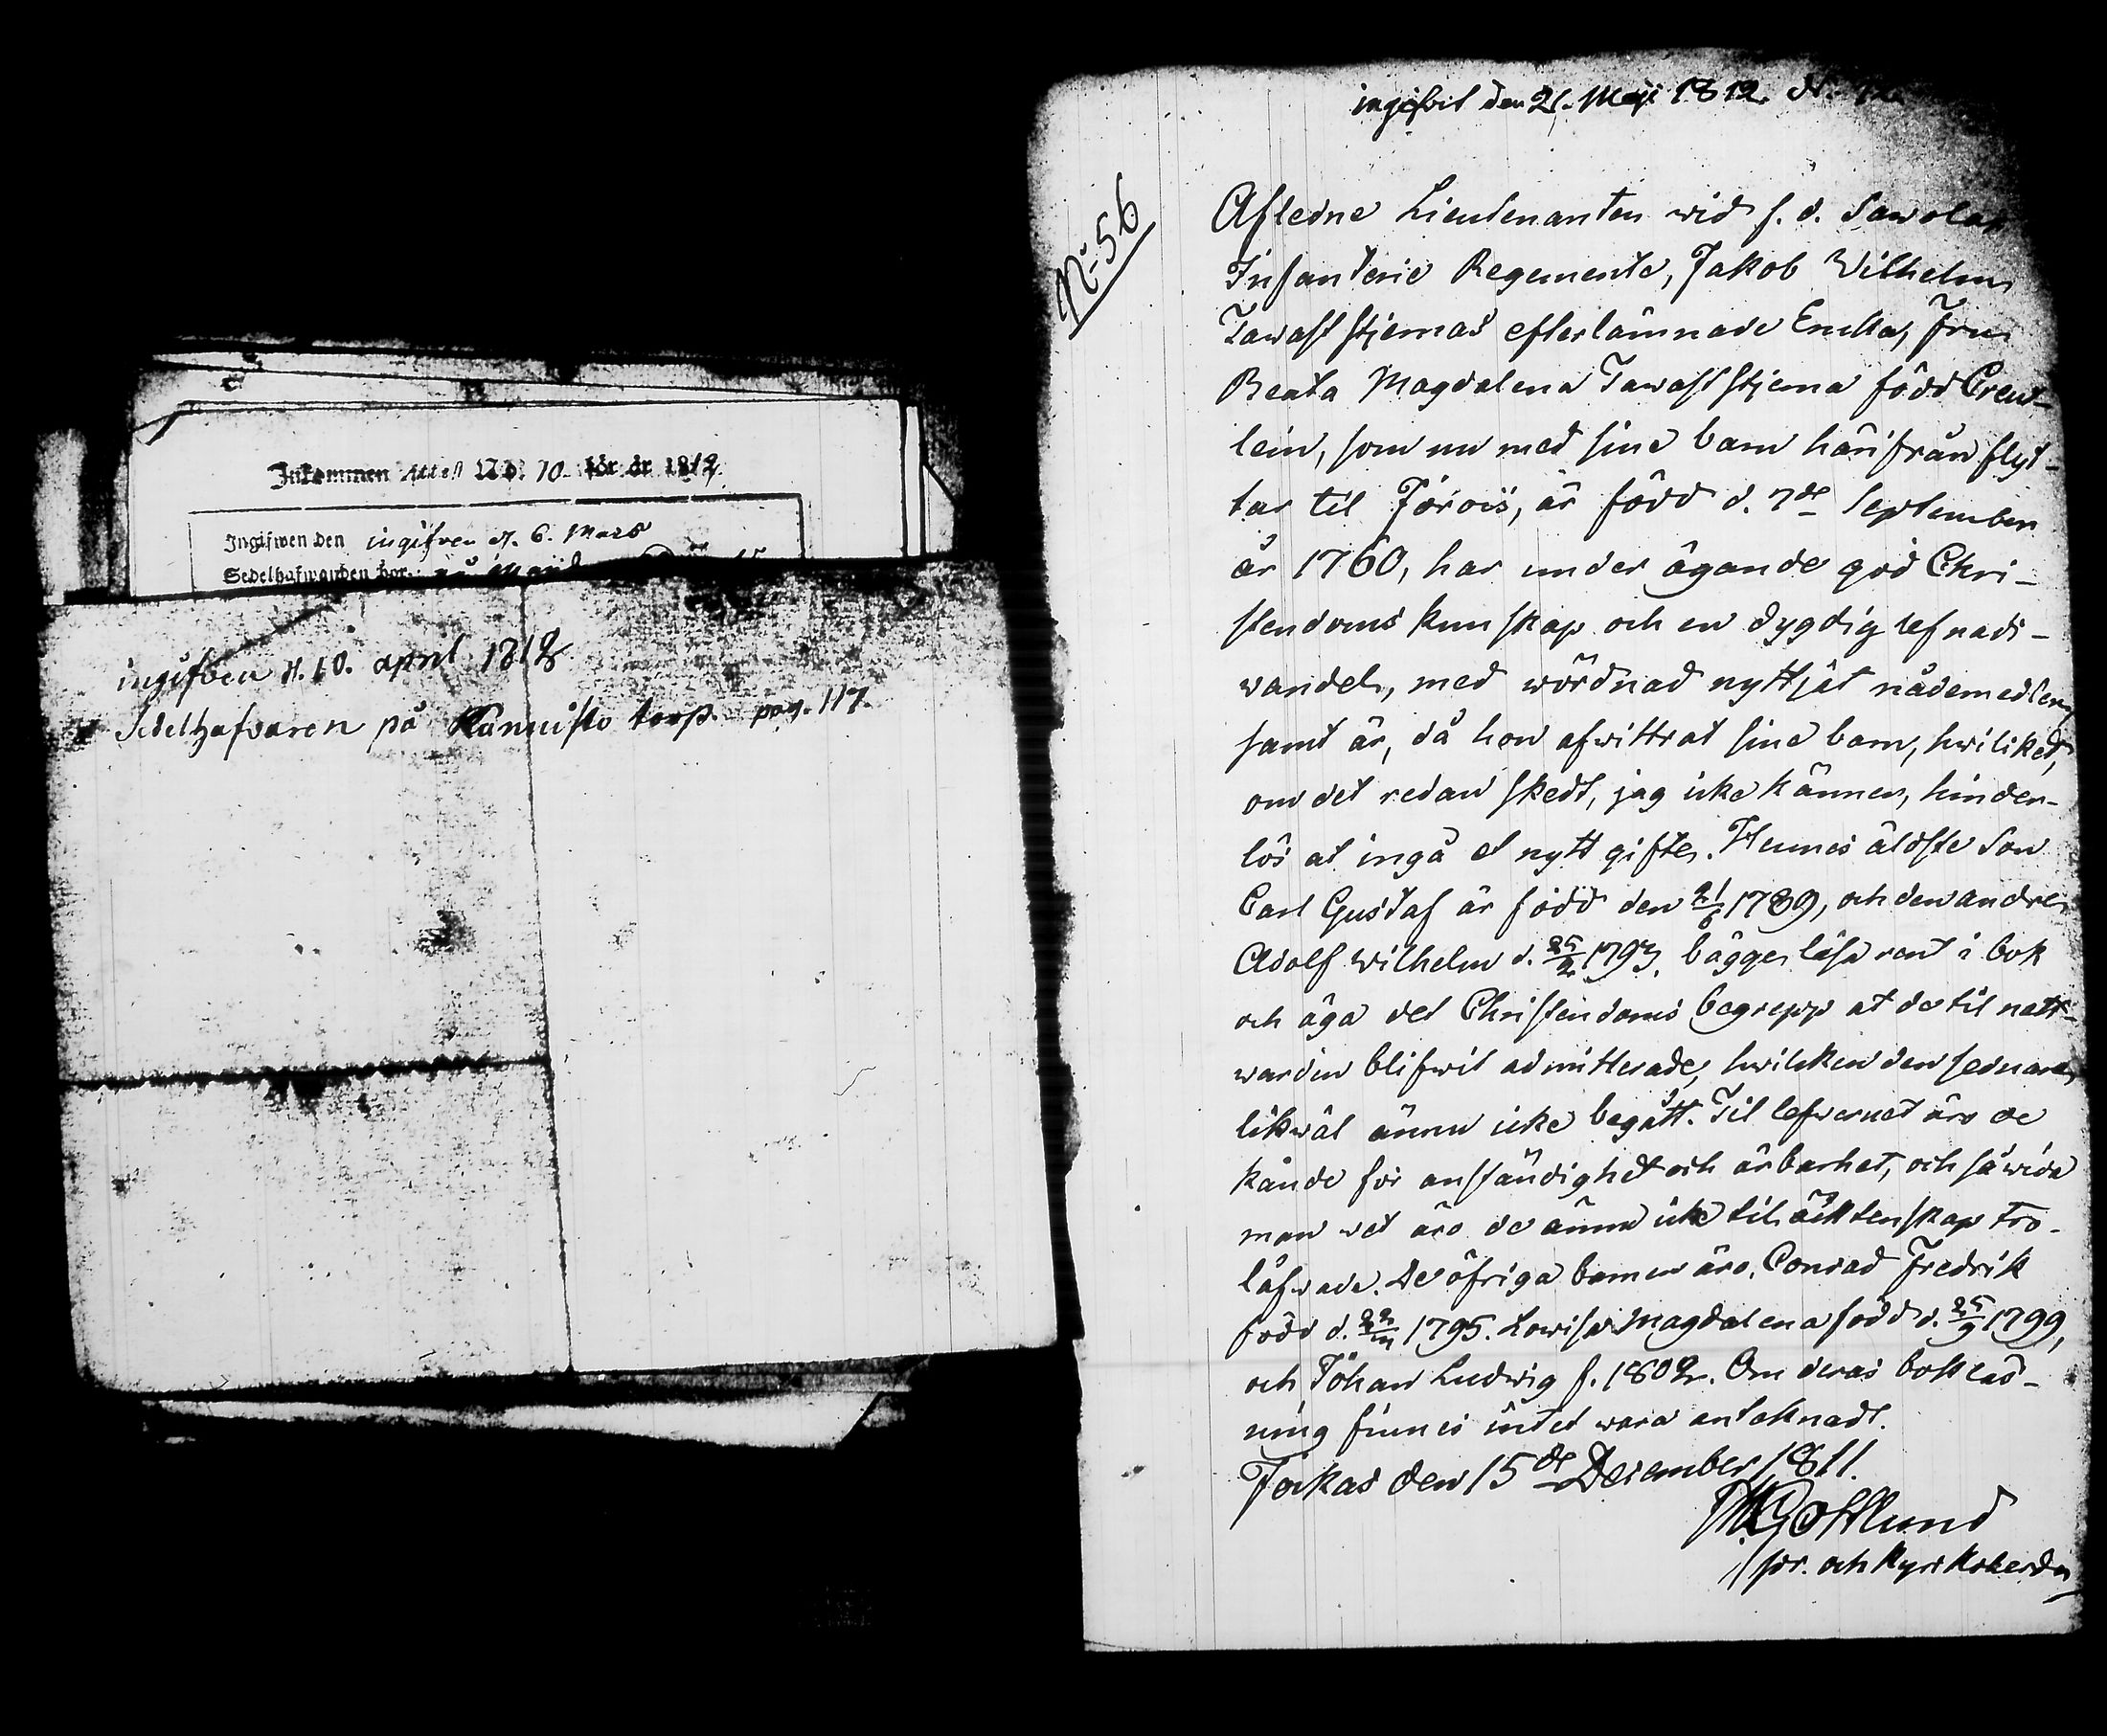 Inkommen attest No. 10 för år 1812.
Ingifwen den ingifven d. 6. Mars
Sedelhafwanden bor
ingifven d. 10. april 1812
Sedelhafvaren på Kannisto torp. pag. 117.
ingifvit den 21. Maji 1812.
No 56
Afledne Lieutenanten wid f. d. Sawolax
Infanterie Regemente, Jakob Wilhelm
Tawaststjernas efterlämnade Enka, Fru
Beata Magdalena Tawaststjerna född Creut-
lein, som nu med sine barn härifrån flyt-
tar til Jorois, är född d. 7de September
år 1760, har under ägande god Chri-
stendoms kunskap och en dygdig lefnads-
vandel, med wördnad nyttjat nådemedlen,
samt är, då hon afwittrat sine barn, hwilket,
om det redan skedt, jag icke känner, hinder-
lös at ingå et nytt gifte. Hennes äldste Son
Carl Gustaf är född den 21/6 1789, och den andre
Adolf Wilhelm d. 25/2 1793, bägge läsa rent i bok
och äga det Christendoms begrepp at de til natt-
warden blifwit admitterade, hwilken den sednare
likwäl ännu icke begått. Til lefwernet äro de
kände för anständighet och ärbarhet, och såwida
man vet äro de ännu icke til äcktenskap tro-
låfwade. De öfriga barnen äro, Conrad Fredrik
född d. 1795. Lowisa Magdalena född d. 25/9 1799,
och Johan Ludwig f. 1802. Om deras bokläs-
ning finnes intet wara antecknadt.
Jokas den 15de December 1811.
M. Gottlund
pr. och Kyrkoherde